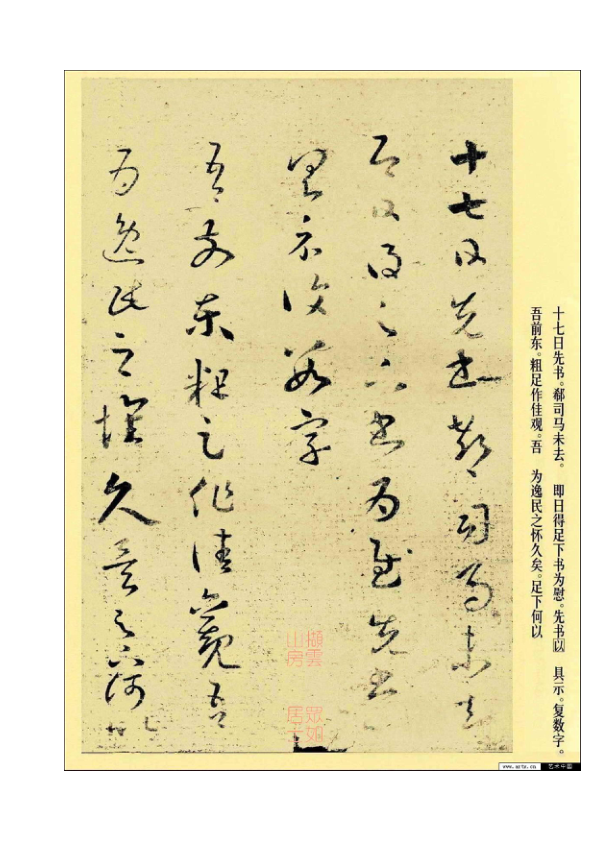 十七日先书。郗司马未去。 即日得足下书为慰。先书以 具示。复数字。
吾前东。粗足作佳观。吾 为逸民之怀久矣。足下何以
十七日先書郗司馬未去
即日得足下書為慰先書以
具示復數字
吾前東粗足作佳觀吾
為逸民之懷久矣足下何以
擷雲
山房
居士
www.artx.cn 艺术中国